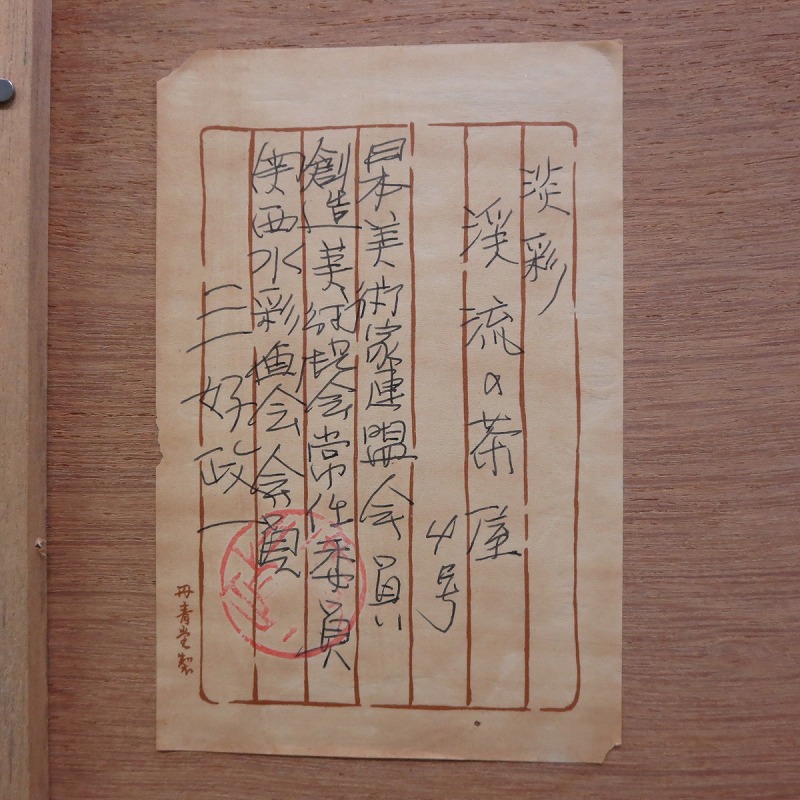 淡彩
渓流の茶屋
4号
日本美術家連盟会員
創造美術協会常任委員
関西水彩画会会員
三好政一
丹青堂製